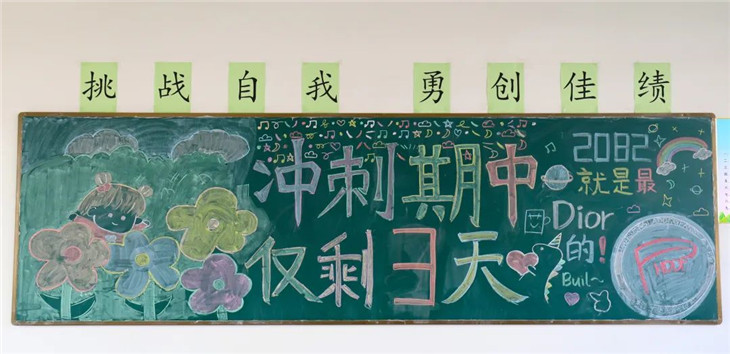 挑战自我 勇创佳绩
冲刺期中
仅剩3天
2082
就是最
Dior
的!
Buil~